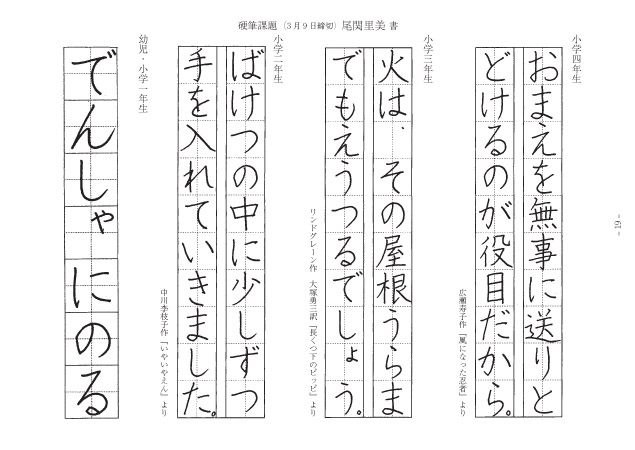 硬筆課題（３月９日締切）尾関里美 書
小学四年生
おまえを無事に送りと
どけるのが役目だから。
広瀬寿子作「風になった忍者」より
小学三年生
火は、その屋根うらま
でもえうつるでしょう。
リンドグレーン作　大塚勇三訳「長くつ下のピッピ」より
小学二年生
ばけつの中に少しずつ
手を入れていきました。
中川李枝子作「いやいやえん」より
幼児・小学一年生
でんしゃにのる
- 19 -